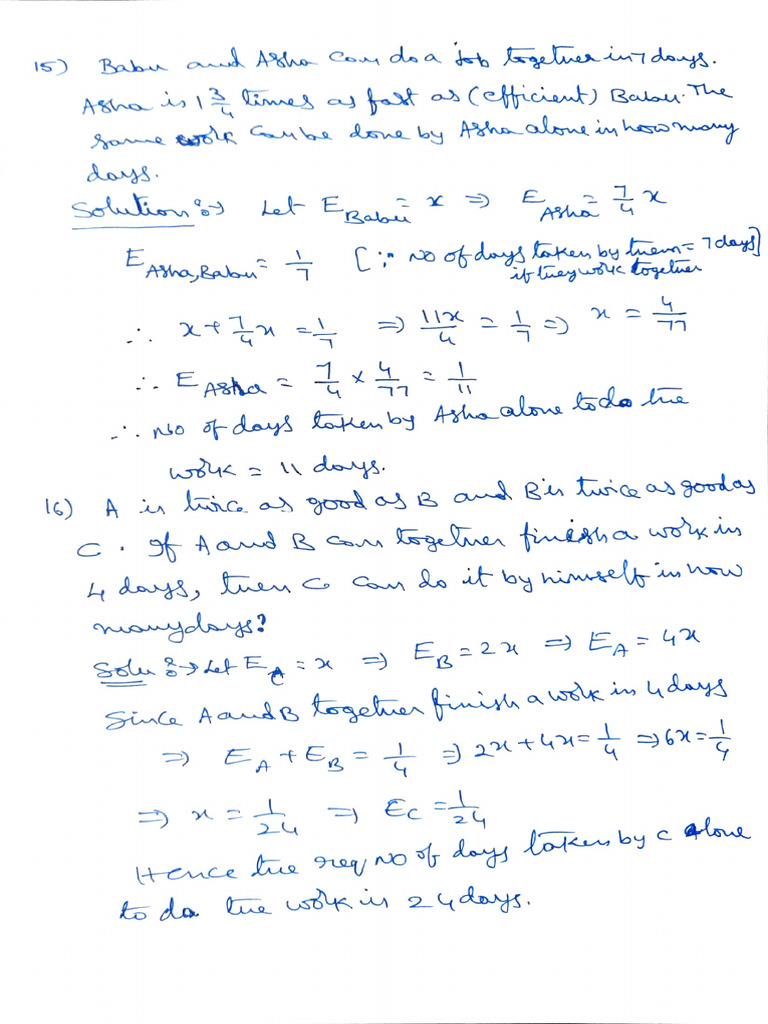 15) Babu and Asha can do a job together in 7 days.
Asha is 1 3/4 times as fast as (efficient) Babu. The
same work can be done by Asha alone in how many
days.
Solution :→ Let E_Babu = x ⇒ E_Asha = 7/4 x
E_Asha,Babu = 1/7 [∵ No of days taken by them = 7 days]
if they work together
∴ x + 7/4 x = 1/7 ⇒ 11x/4 = 1/7 ⇒ x = 4/77
∴ E_Asha = 7/4 × 4/77 = 1/11
∴ No of days taken by Asha alone to do the
work = 11 days.
16) A is twice as good as B and B is twice as good as
C. If A and B can together finish a work in
4 days, then C can do it by himself in how
many days?
Solu :→ Let E_C = x ⇒ E_B = 2x ⇒ E_A = 4x
Since A and B together finish a work in 4 days
⇒ E_A + E_B = 1/4 ⇒ 2x + 4x = 1/4 ⇒ 6x = 1/4
⇒ x = 1/24 ⇒ E_C = 1/24
Hence the req No of days taken by C alone
to do the work is 24 days.